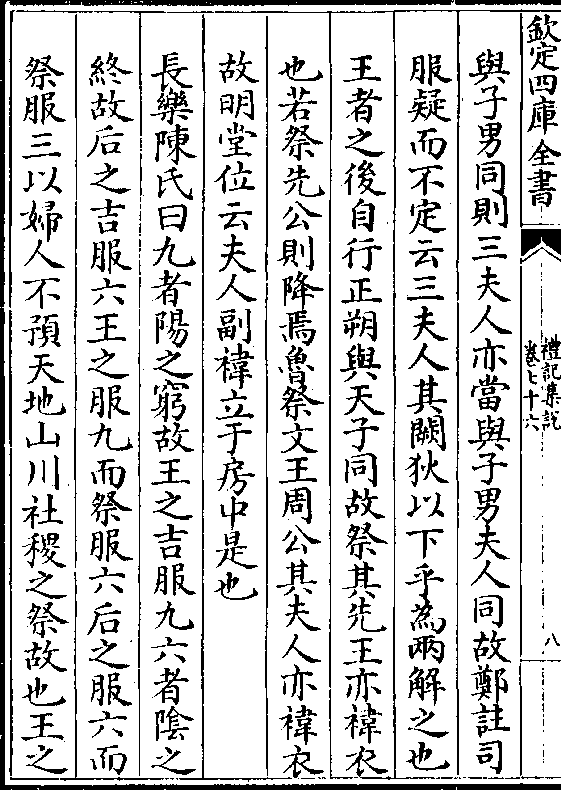 欽定四庫全書
禮記集説
卷七十六
八
與子男同則三夫人亦當與子男夫人同故鄭註司
服疑而不定云三夫人其闕狄以下乎為兩解之也
王者之後自行正朔與天子同故祭其先王亦褘衣
也若祭先公則降焉魯祭文王周公其夫人亦褘衣
故明堂位云夫人副褘立于房中是也
長樂陳氏曰九者陽之窮故王之吉服九六者陰之
終故后之吉服六王之服九而祭服六后之服六而
祭服三以婦人不預天地山川社稷之祭故也王之